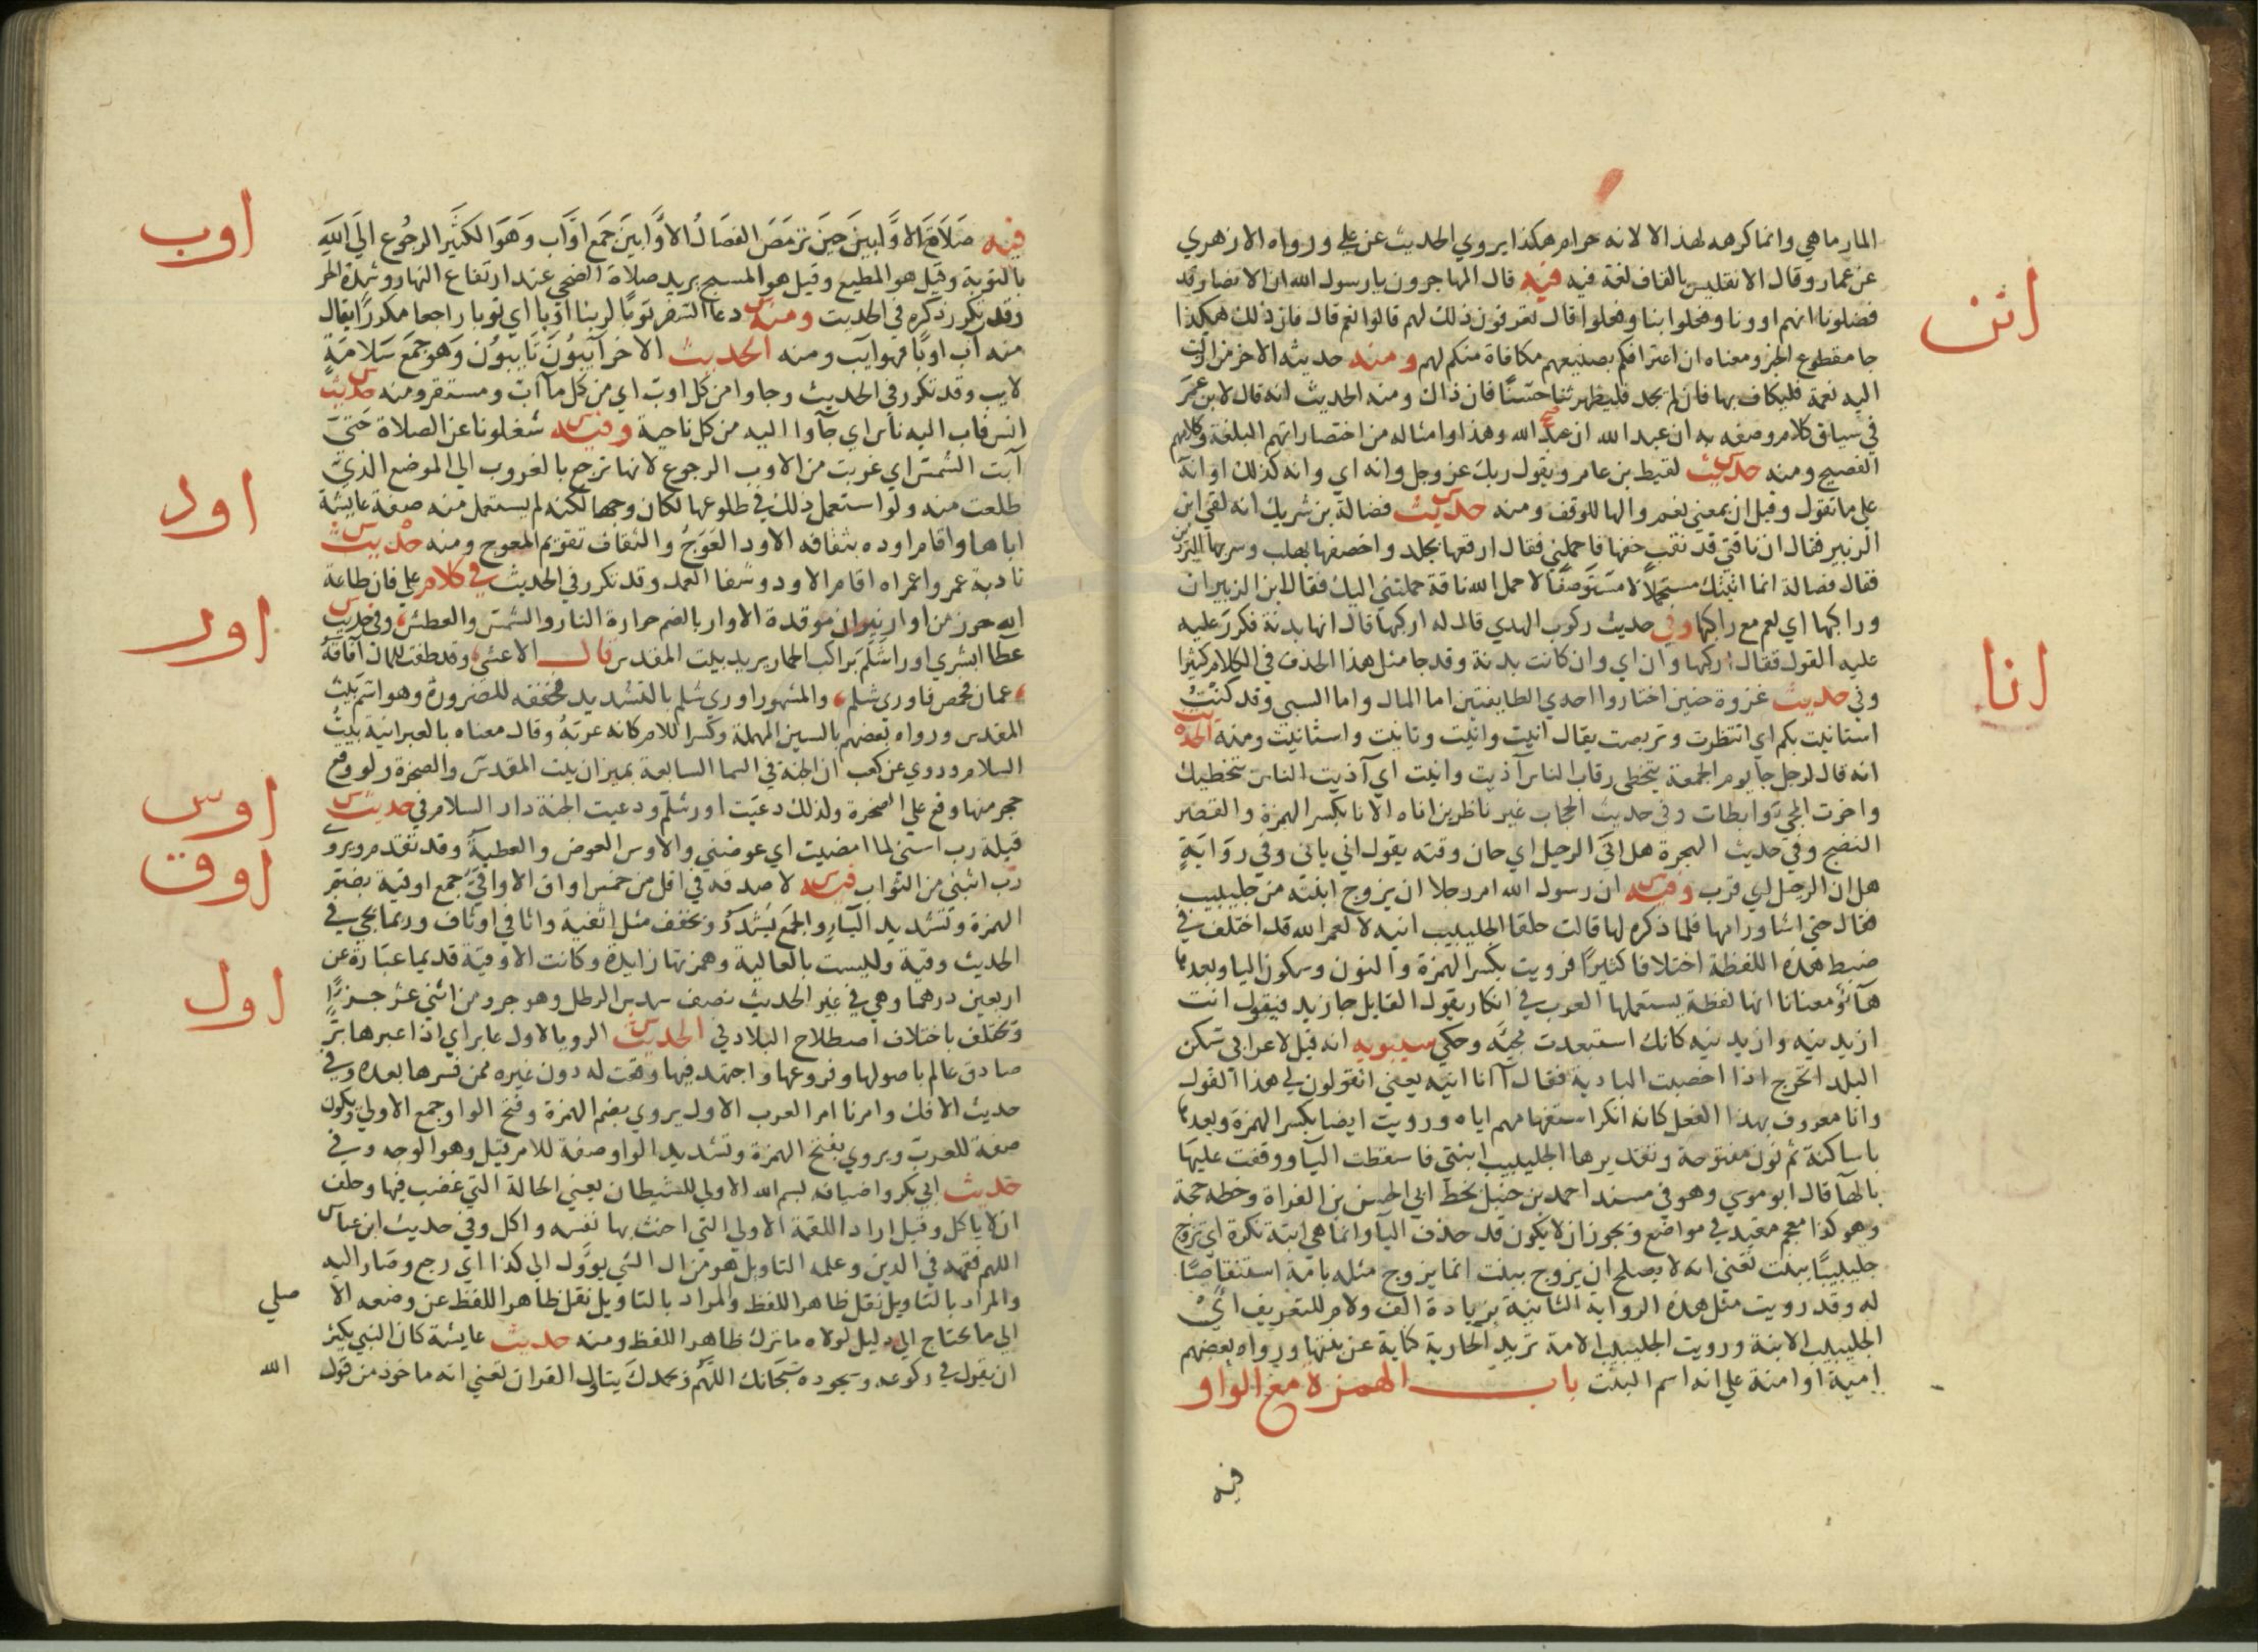 المارماهي وانما كرهه لهذا لا لانه حرام هكذا يروي الحديث عن علي ورواه الازهري
انن
عن عمار وقال الانقليس بالقاف لغة فيه فيه قال المهاجرون يا رسول الله ان الانصار قد
فضلونا انهم اوونا وفعلوا بنا وفعلوا قال تعرفون ذلك لهم قالوا نعم قال فان ذلك هكذا
جا مقطوع الخبر ومعناه ان اعترافكم بصنيعهم مكافاة منكم لهم ومنه حديثه الاخر من ازلت
اليه نعمة فليكاف بها فان لم يجد فليظهر ثنا حسنا فان ذلك ومنه الحديث انه قال لابن عمر
في سياق كلام وصفه به ان عبد الله ان عبد الله وهذا وامثاله من اختصاراتهم البلغة وكلامهم
الفصيح ومنه حديث لقيط بن عامر ويقول ربك عز وجل وانه اي وانه كذلك او انه
علي ما تقول وقيل ان بمعني نعم والها للوقف ومنه حديث فضالة بن شريك انه لقي ابن
الزبير فقال ان ناقتي قد نقب خفها فاحملني فقال ارقعها بجلد واخصفها بهلب وسر بها البردين
فقال فضالة انما اتيتك مستحملا لا مستوصفا لا حمل الله ناقة حملتني اليك فقال ابن الزبير ان
وراكبها اي نعم مع راكبها وفي حديث ركوب الهدي قال له اركبها قال انها بدنة فكرر عليه
عليه القول فقال اركبها وان اي وان كانت بدنة وقد جا مثل هذا الحذف في الكلام كثيرا
انا
وفي حديث غزوة حنين اختاروا احدي الطايفتين اما المال واما السبي وقد كنت
استانيت بكم اي انتظرت وتربصت يقال انيت وانيت وتانيت واستانيت ومنه الحديث
انه قال لرجل جا يوم الجمعة يتخطى رقاب الناس آذيت وانيت اي آذيت الناس بتخطيك
واخرت المجئ وابطات وفي حديث الحجاب غير ناظرين اناه الانا بكسر الهمزة والقصر
النضج وفي حديث الهجرة هل اني الرحيل اي حان وقته يقول اني ياني وفي رواية
هل ان الرحيل اي قرب وفيه ان رسول الله امر رجلا ان يزوج ابنته من جليبيب
فقال حتي اشاور امها فلما ذكره لها قالت حلقا الجليبيب انيه لا لعمر الله قد اختلف في
ضبط هذه اللفظة اختلافا كثيرا فرويت بكسر الهمزة والنون وسكون اليا وبعدها
هآء ومعناها انها لفظة يستعملها العرب في انكار يقول القايل جا زيد فيقول انت
ازيد نيه وازيد نيه كانك استبعدت مجيئه وحكي سيبويه انه قيل لاعرابي سكن
البلد اتخرج اذا اخصبت البادية فقال آ انا انيه يعني اتقولون لي هذا القول
وانا معروف بهذا الفعل كانه انكر استفهامهم اياه ورويت ايضا بكسر الهمزة وبعدها
باساكنة ثم نون مفتوحة وتقديرها الجليبيب ابنتي فاسقطت اليآ ووقفت عليها
بالهآ قال ابو موسي وهو في مسند احمد بن حنبل بخط ابي الحسن بن الفراة وخطه حجة
وهو كذا معجم مقيد في مواضع ويجوز ان لا يكون قد حذف اليا وانما هي ابنة نكرة اي تزوج
جليبيبا ببنت تعني انه لا يصلح ان يزوج ببنت انما يزوج مثله بامة استنقاصا
له وقد رويت مثل هذه الرواية الثانية بزيادة الف ولام للتعريف اي
الجليبيب الابنة ورويت الجليبيب الامة تريد الجارية كناية عن بنتها ورواه بعضهم
امية او امنة علي انه اسم البنت باب الهمزة مع الواو
فيه
اوب
فيه صلاة الاوابين حين ترمض الفصال الاوابين جمع اواب وهو الكثير الرجوع الي الله
بالتوبة وقيل هو المطيع وقيل هو المسبح يريد صلاة الضحي عند ارتفاع النهار وشدة الحر
وقد تكرر ذكره في الحديث ومنه دعا السفر توبا لربنا اوبا اي توبا راجعا مكررا يقال
منه آب اوبا فهو ايب ومنه الحديث الاخر آيبون تايبون وهو جمع سلامة
لايب وقد تكرر في الحديث وجاوا من كل اوب اي من كل مآاب ومستقر ومنه حديث
انس فاب اليه ناس اي جآوا اليه من كل ناحية وفيه شغلونا عن الصلاة حتي
آبت الشمس اي غربت من الاوب الرجوع لانها ترجع بالغروب الي الموضع الذي
اود
طلعت منه ولو استعمل ذلك في طلوعها لكان وجها لكنه لم يستعمل منه صفة عايشة
اباها واقام اوده بثقافه الاود العوج والثقاف تقويم المعوج ومنه حديث
نادبة عمر واعمراه اقام الاود وشفا العمد وقد تكرر في الحديث في كلام علي فان طاعة
اور
الله حرز من اوار نيران موقدة الاوار بالضم حرارة النار والشمس والعطش وفي حديث
عطآ ابشري اوراشلم براكب الحمار يريد بيت المقدس قال الاعشي وقد طفت للمال آفاقه
عمان فحمص فاوري شلم والمشهور اوري شلم بالتشديد فخففه للضرورة وهو اسم بيت
المقدس ورواه بعضهم بالسين المهملة وكسر اللام كانه عربه وقال معناه بالعبرانية بيت
السلام وروي عن كعب ان الجنة في السما السابعة بميزان بيت المقدس والصخرة ولو وقع
اوس
حجر منها وقع علي الصخرة ولذلك دعيت اورشلم ودعيت الجنة دار السلام في حديث
قيلة رب اسني لما امضيت اي عوضني والاوس العوض والعطية وقد تقدم ويروي
اوق
رب اثبني من الثواب فيه لا صدقة في اقل من خمس اواق الاواقي جمع اوقية بضم
الهمزة وتشديد اليآء والجمع يشدد ويخفف مثل اثفية واثافي واثاف وربما يجي في
الحديث وقية وليست بالعالية وهمزتها زايدة وكانت الاوقية قديما عبارة عن
اول
اربعين درهما وهي في غير الحديث نصف سدس الرطل وهو جزو من اثني عشر جزءا
وتختلف باختلاف اصطلاح البلاد في الحديث الرويا لاول عابر اي اذا عبرها بر
صادق عالم باصولها وفروعها واجتهد فيها وقعت له دون غيره ممن فسرها بعده وفي
حديث الافك وامرنا امر العرب الاول يروي بضم الهمزة وفتح الواو جمع الاولي ويكون
صفة للعرب ويروي بفتح الهمزة وتشديد الواو صفة للامر قيل وهو الوجه وفي
حديث ابي بكر واضيافه بسم الله الاولي للشيطان يعني الحالة التي غضب فيها وحلف
ان لا ياكل وقيل اراد اللقمة الاولي التي احنث بها نفسه واكل وفي حديث ابن عباس
اللهم فقهه في الدين وعلمه التاويل هو من ال الشي يوول الي كذا اي رجع وصار اليه
والمراد بالتاويل نقل ظاهر اللفظ والمراد بالتاويل نقل ظاهر اللفظ عن وضعه الا صلي
الي ما يحتاج الي دليل لولاه ما ترك ظاهر اللفظ ومنه حديث عايشة كان النبي يكثر
ان يقول في ركوعه وسجوده سبحانك اللهم وبحمدك يتاول القران تعني انه ماخوذ من قول الله